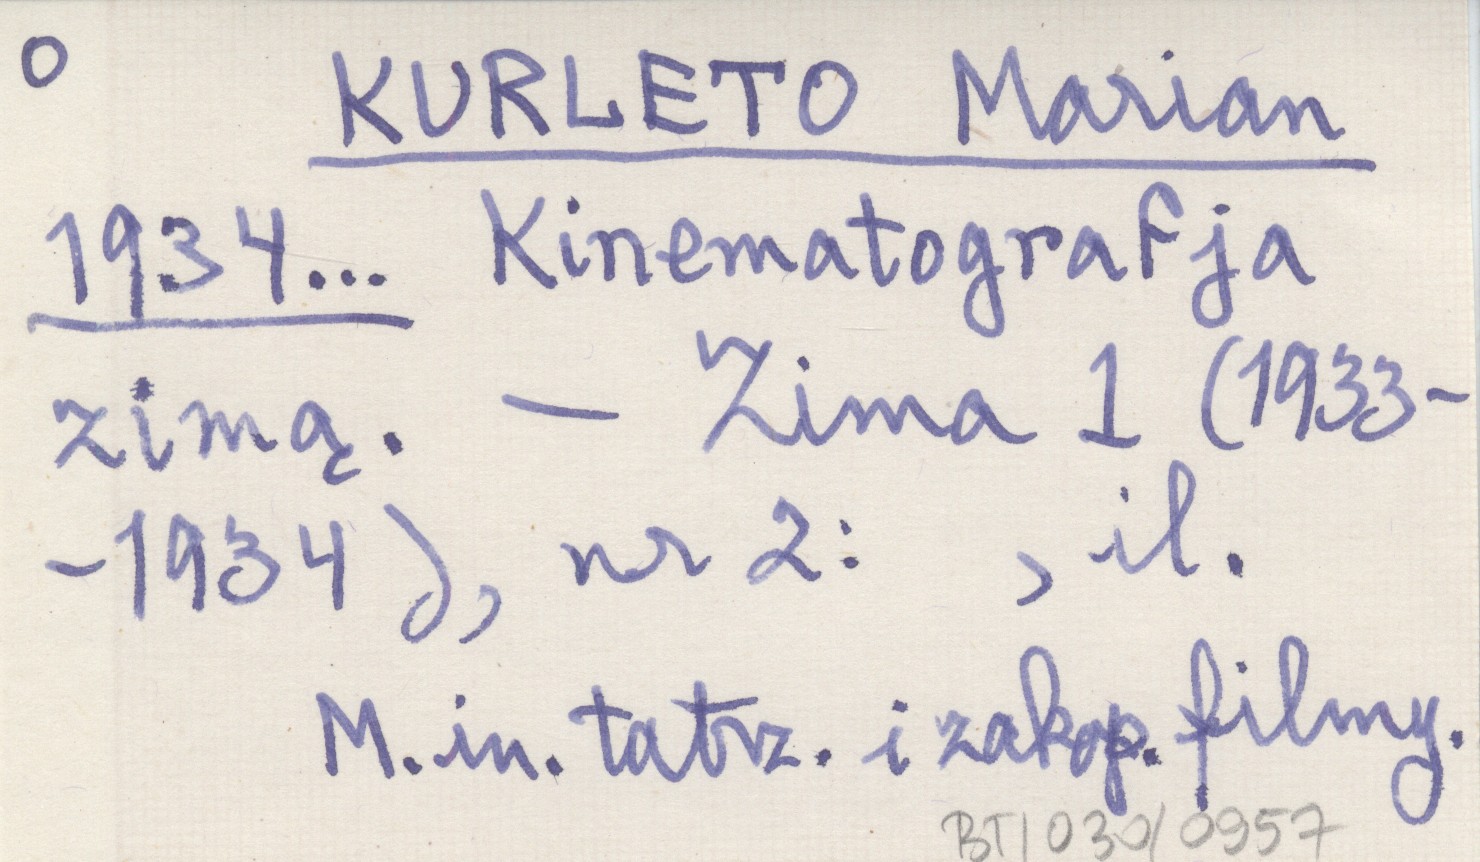 o KURLETO Marian
1934... Kinematografja
zimą. — Zima 1 (1933-
-1934), nr 2: , il.
M. in. tatrz. i zakop. filmy.
BT/030/0957